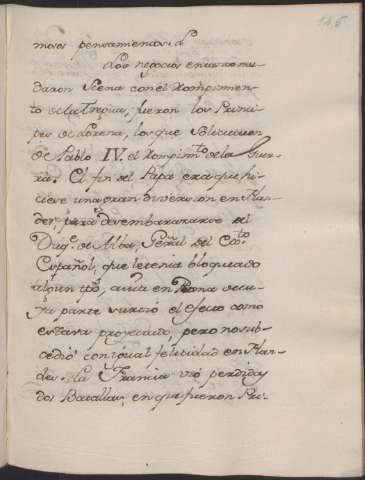 145
mosos pensamientos.
Los negocios en esto mu-
daron Scena con el Rompimien-
to de la Tregua; fueron los Princi-
pes de Lorena, los que solicitaron
de Pablo IV. el Rompim.to de la Guer-
ra. El fin del Papa era que hi-
ciese una gran diversion en Flan-
des, para desembarazarse del
Duq.e de Alba, Gen̅ral del Ex.to
Español, que le tenia bloqueado
algun tpõ, avia en Roma de cu-
ya parte surtió el efecto como
estava proyectado, pero no sub-
cedió con igual felicidad en Flan-
des. La Francia vió perdidas
dos Batallas, en que fueron Pri-